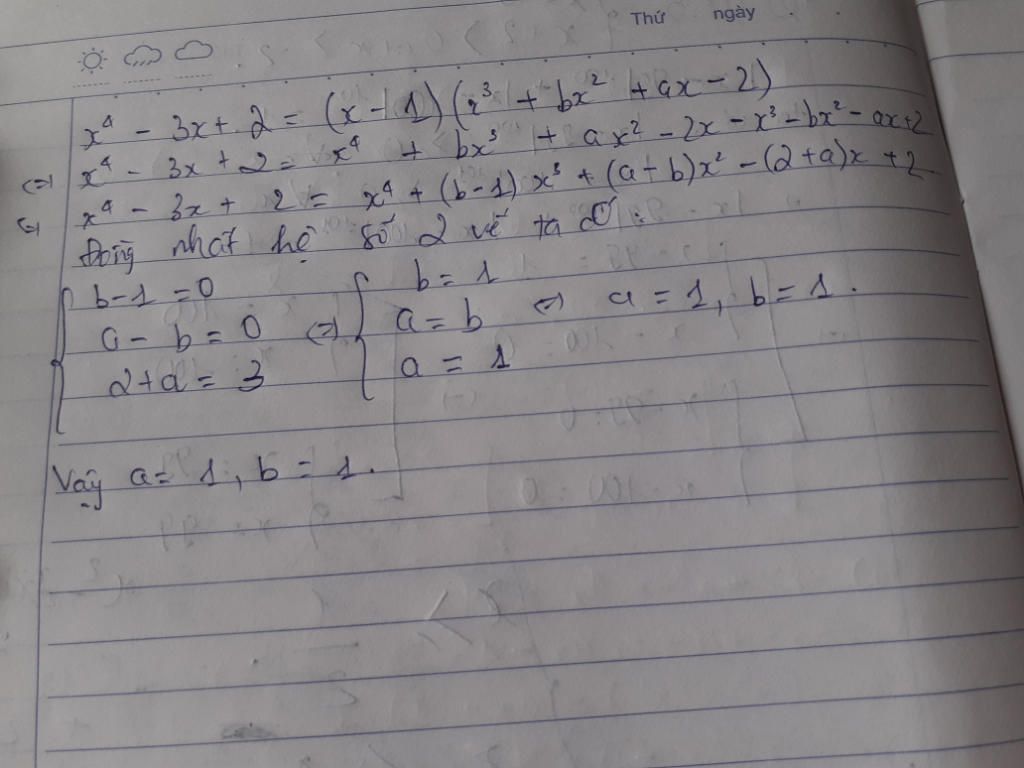 Thứ ngày
x⁴ - 3x + 2 = (x - 1)(x³ + bx² + ax - 2)
(=) x⁴ - 3x + 2 = x⁴ + bx³ + ax² - 2x - x³ - bx² - ax + 2
(=) x⁴ - 3x + 2 = x⁴ + (b-1)x³ + (a+b)x² - (2+a)x + 2
Đồng nhất hệ số 2 vế ta có:
{ b-1 = 0 { b = 1
a - b = 0 (=) a = b (=) a = 1, b = 1.
2+a = 3 a = 1
Vậy a = 1, b = 1.